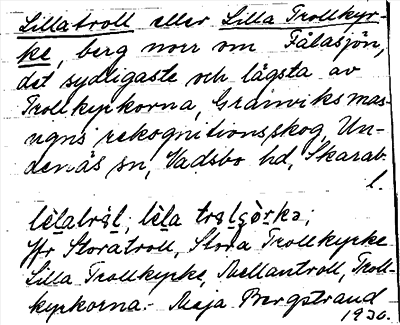 Lillatroll eller Lilla Trollkyr-
ke, berg norr om Fålasjön,
det sydligaste och lägsta av
Trollkyrkorna, Granviks mas-
ugns rekognitionsskog, Un-
denäs sn, Vadsbo hd, Skarab.
l.
Jfr Storatroll, Stora Trollkyrke
Lilla Trollkyrke, Mellantroll, Troll-
kyrkorna. - Maja Bergstrand
1930.